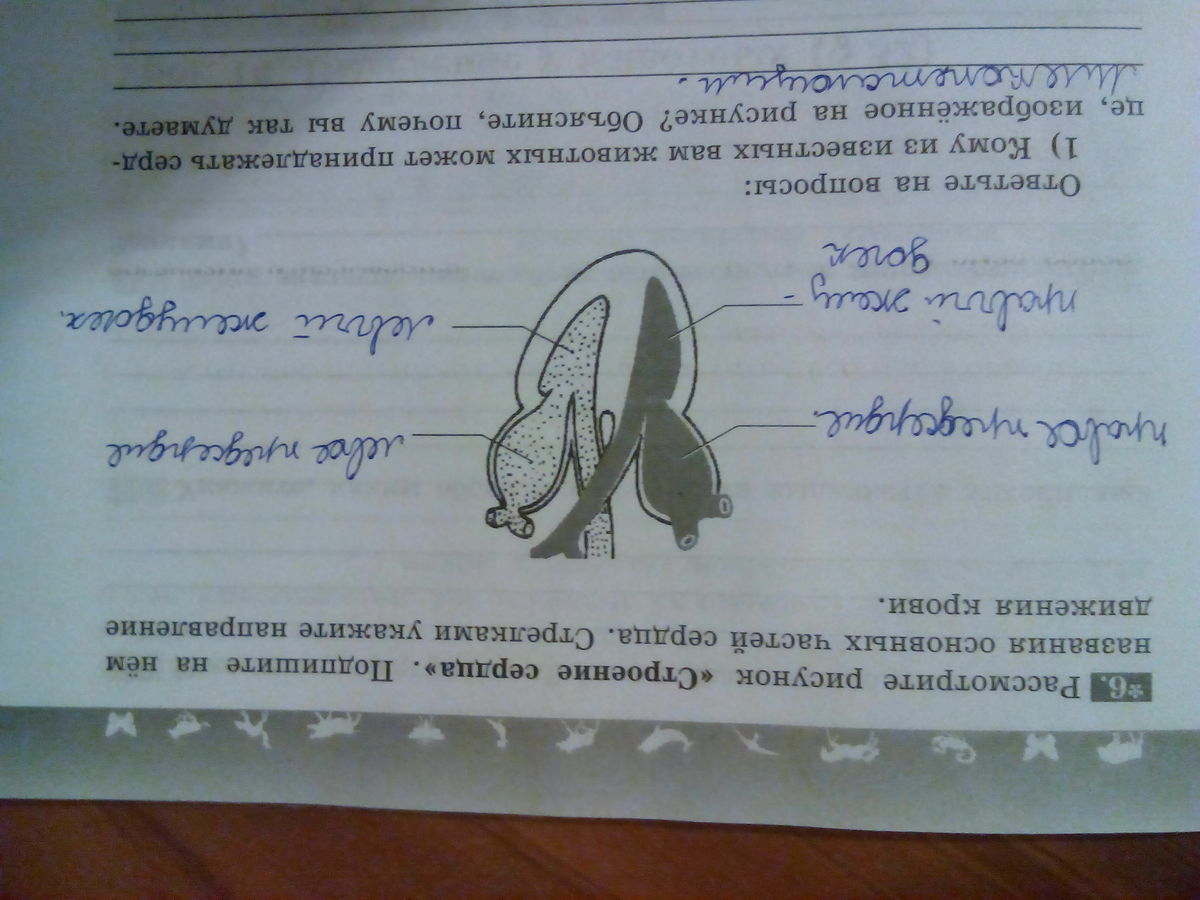 *6. Рассмотрите рисунок «Строение сердца». Подпишите на нём
названия основных частей сердца. Стрелками укажите направление
движения крови.
правое предсердие.
левое предсердие
правый желу-
дочек
левый желудочек.
Ответьте на вопросы:
1) Кому из известных вам животных может принадлежать серд-
це, изображённое на рисунке? Объясните, почему вы так думаете.
Млекопитающим.